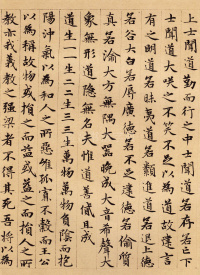 上士聞道勤而行之中士聞道若存若亡下
士聞道大咲之不咲不足以為道故建言
有之明道若昧夷道若類進道若退上德
若谷大白若辱廣德若不足建德若偷質
真若渝大方無隅大器晚成大音希聲大
象無形道隱無名夫惟道善貸且成
道生一一生二二生三三生萬物萬物負陰而抱
陽沖氣以為和人之所惡唯孤寡不轂而王公
以為稱故物或損之而益或益之而損人所
教亦我義教之強梁者不得其死吾將以為